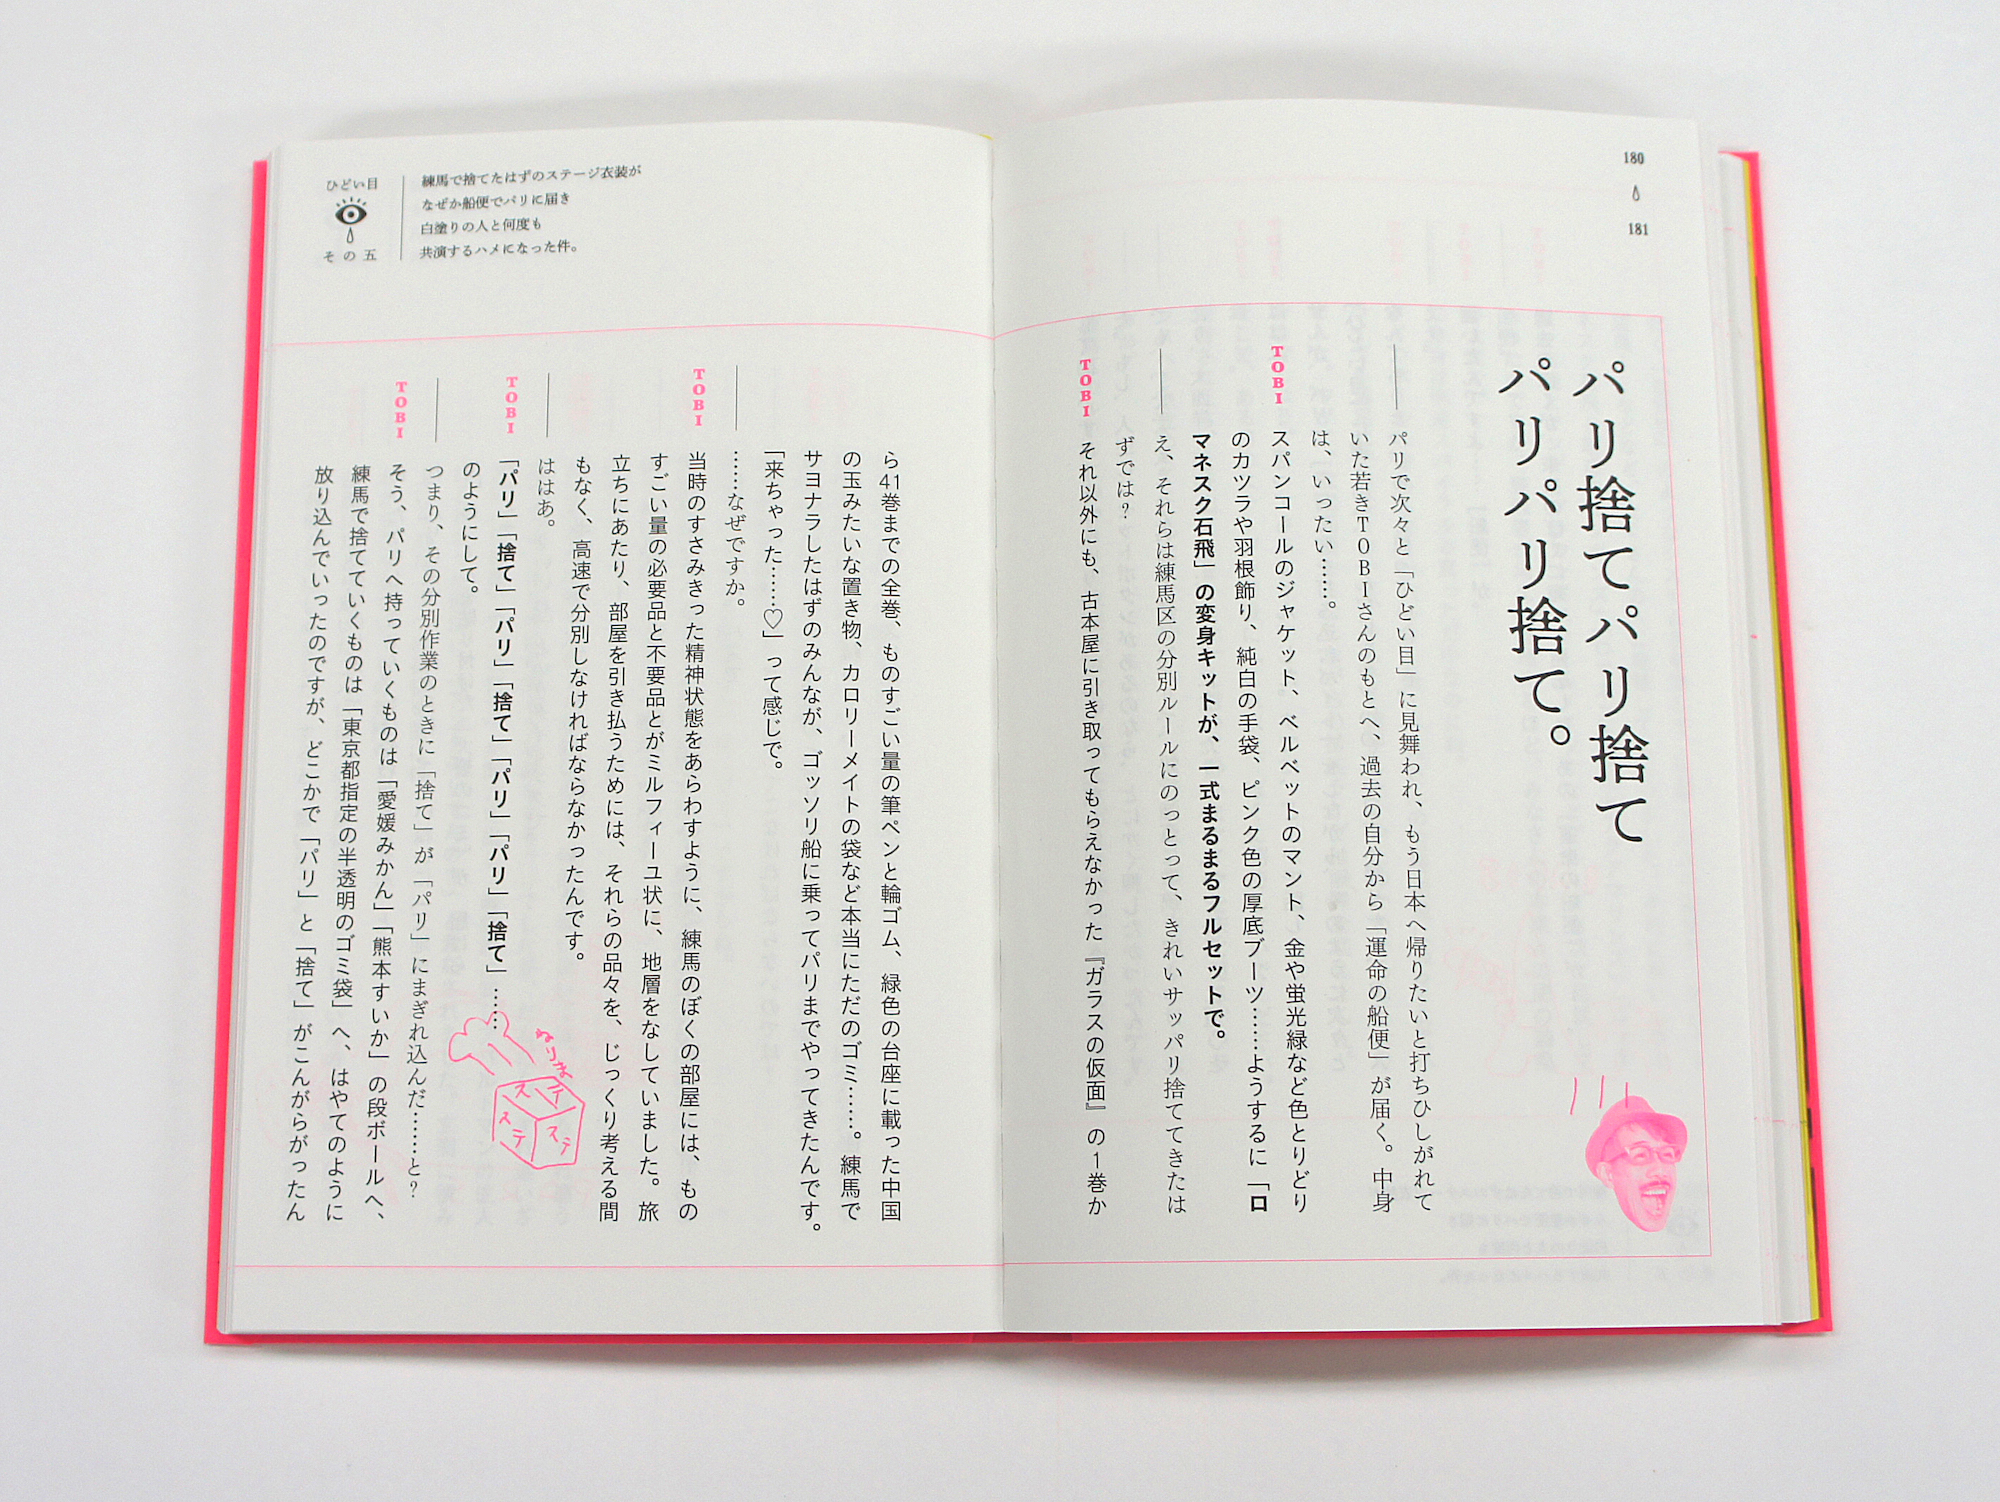 180
181
パリ捨てパリ捨て
パリパリ捨て。
――パリで次々と「ひどい目」に見舞われ、もう日本へ帰りたいと打ちひしがれて
いた若きTOBIさんのもとへ、過去の自分から「運命の船便」が届く。中身
は、いったい……。
TOBI スパンコールのジャケット、ベルベットのマント、金や蛍光緑など色とりどり
のカツラや羽根飾り、純白の手袋、ピンク色の厚底ブーツ……ようするに「ロ
マネスク石飛」の変身キットが、一式まるまるフルセットで。
――え、それらは練馬区の分別ルールにのっとって、きれいサッパリ捨ててきたは
ずでは？
TOBI それ以外にも、古本屋に引き取ってもらえなかった『ガラスの仮面』の1巻か
ひどい目
その五
練馬で捨てたはずのステージ衣装が
なぜか船便でパリに届き
白塗りの人と何度も
共演するハメになった件。
ら41巻までの全巻、ものすごい量の筆ペンと輪ゴム、緑色の台座に載った中国
の玉みたいな置き物、カロリーメイトの袋など本当にただのゴミ……。練馬で
サヨナラしたはずのみんなが、ゴッソリ船に乗ってパリまでやってきたんです。
「来ちゃった……♡」って感じで。
――……なぜですか。
TOBI 当時のすさみきった精神状態をあらわすように、練馬のぼくの部屋には、もの
すごい量の必要品と不要品とがミルフィーユ状に、地層をなしていました。旅
立ちにあたり、部屋を引き払うためには、それらの品々を、じっくり考える間
もなく、高速で分別しなければならなかったんです。
――ははあ。
TOBI 「パリ」「捨て」「パリ」「捨て」「パリ」「パリ」「捨て」……
のようにして。
――つまり、その分別作業のときに「捨て」が「パリ」にまぎれ込んだ……と？
TOBI そう、パリへ持っていくものは「愛媛みかん」「熊本すいか」の段ボールへ、
練馬で捨てていくものは「東京都指定の半透明のゴミ袋」へ、はやてのように
放り込んでいったのですが、どこかで「パリ」と「捨て」がこんがらがったん
ねりま
ステ
ステ
ステ